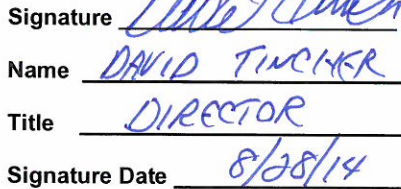 Signature
Name DAVID TINCHER
Title DIRECTOR
Signature Date 8/28/14